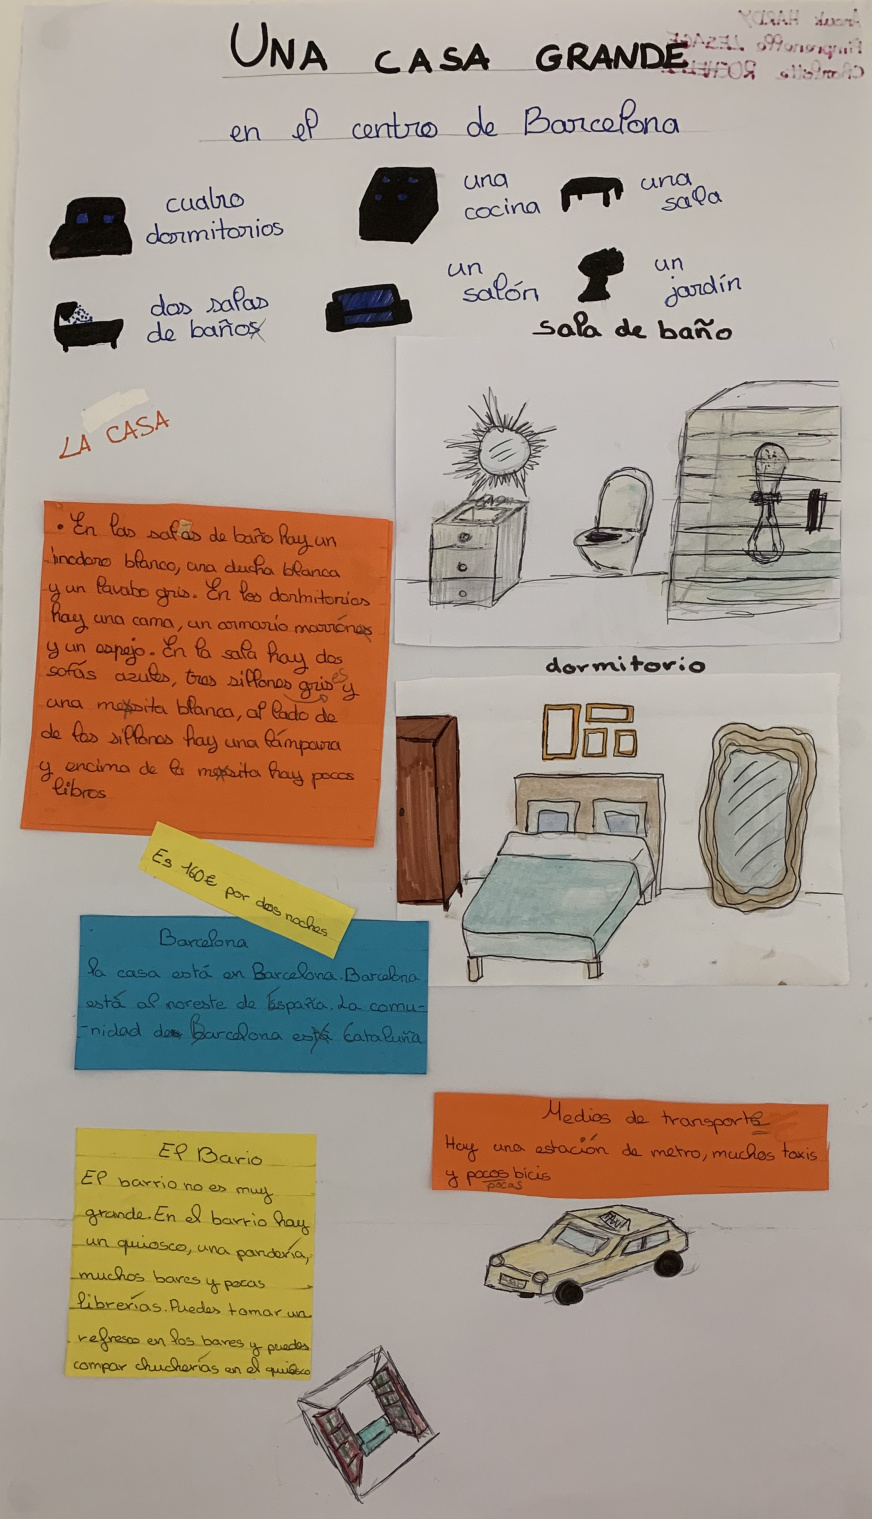 UNA CASA GRANDE
en el centro de Barcelona
cuatro
dormitorios
una
cocina
una
sala
dos salas
de baños
un
salón
un
jardín
sala de baño
LA CASA
• En las salas de baño hay un
inodoro blanco, una ducha blanca
y un lavabo gris. En los dormitorios
hay una cama, un armario marrónes
y un espejo. En la sala hay dos
sofás azules, tres sillones grises y
una mesita blanca, al lado de
de los sillones hay una lámpara
y encima de la mesita hay pocos
libros
dormitorio
Es 160€ por dos noches
Barcelona
la casa está en Barcelona. Barcelona
está al noreste de España. La comu-
-nidad de Barcelona está Cataluña
Medios de transporte
Hay una estación de metro, muchos taxis
y pocos bicis
pocas
El Bario
El barrio no es muy
grande. En el barrio hay
un quiosco, una pandería,
muchos bares y pocas
librerías. Puedes tomar un
refresco en los bares y puedes
compar chucherías en el quiosco